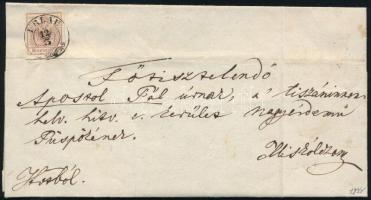 ERLAU
12
5
Főtisztelendő
Apostol Pál úrnak, a' tiszáninnen
helv. hitv. e. kerület nagyérdemű
Püspökének
Miskólczon